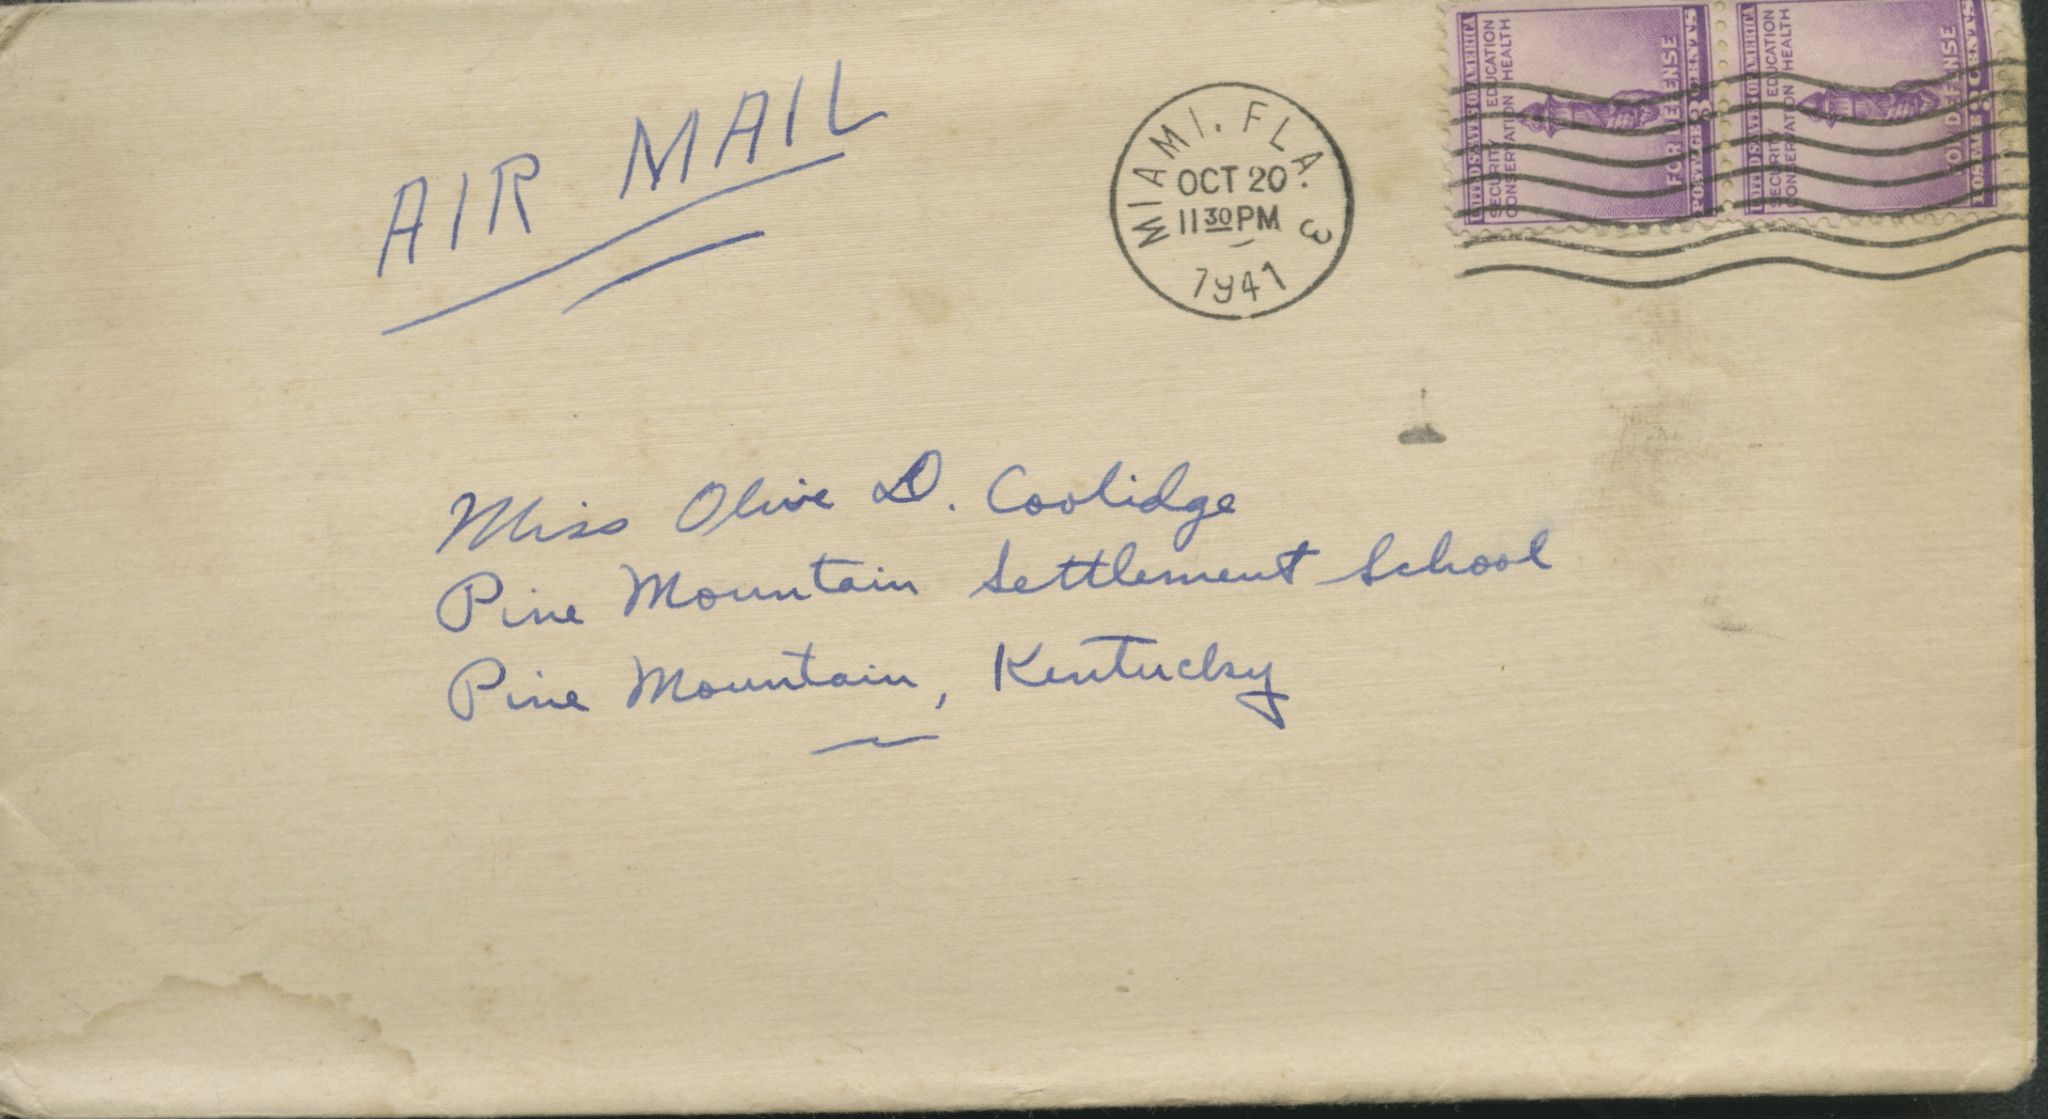 AIR MAIL
MIAMI, FLA. 3
OCT 20
11 30 PM
1941
UNITED STATES OF AMERICA
SECURITY EDUCATION
CONSERVATION HEALTH
FOR DEFENSE
POSTAGE 3 CENTS
UNITED STATES OF AMERICA
SECURITY EDUCATION
CONSERVATION HEALTH
FOR DEFENSE
POSTAGE 3 CENTS
Miss Olive D. Coolidge
Pine Mountain Settlement School
Pine Mountain, Kentucky